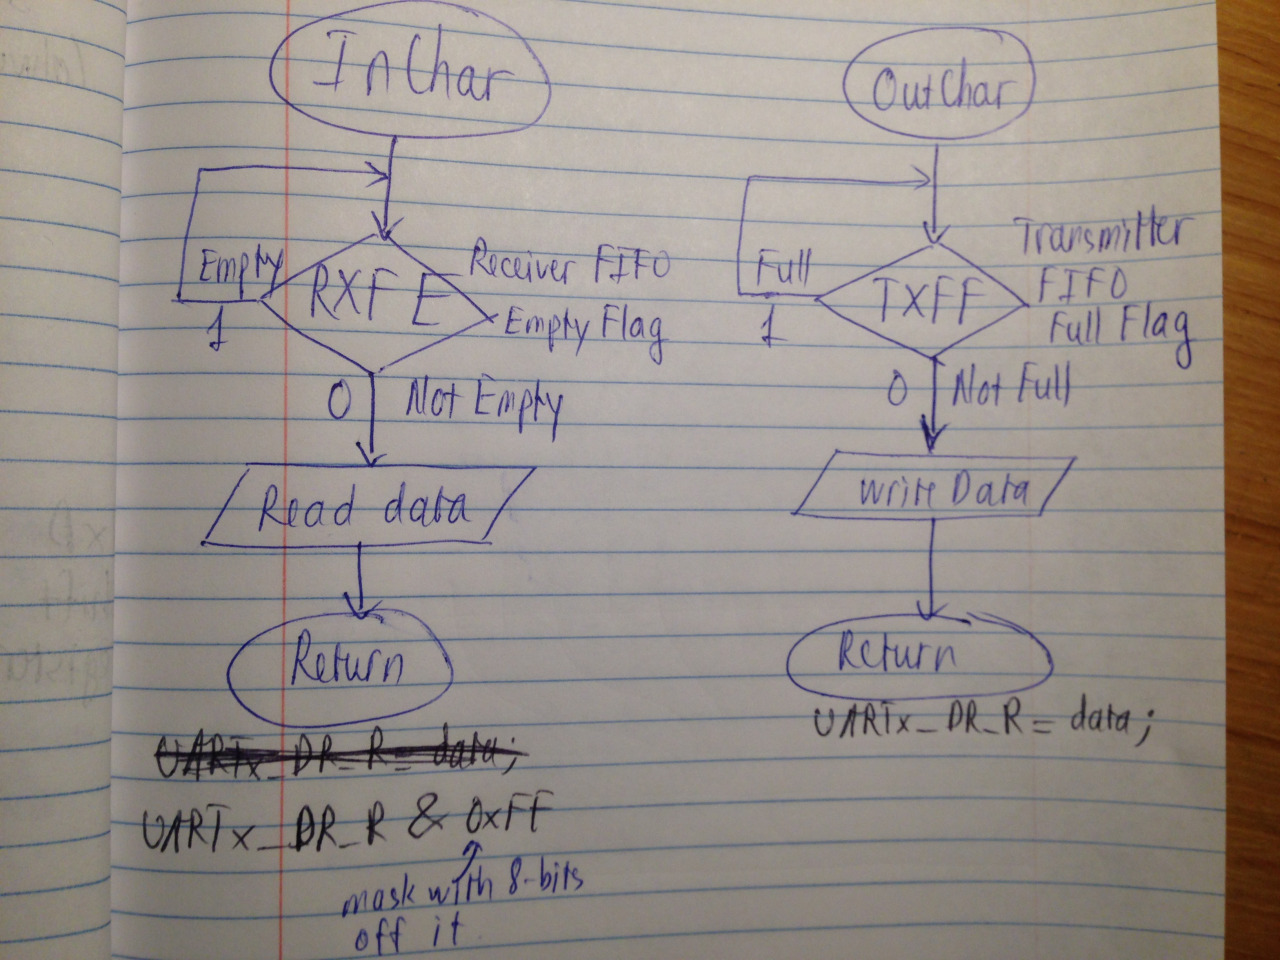 InChar
Empty
RXFE
Receiver FIFO
Empty Flag
1
0 Not Empty
Read data
Return
UARTx_DR_R = data;
UARTx_DR_R & 0xFF
mask with 8-bits
off it
OutChar
Full
TXFF
Transmitter
FIFO
Full Flag
1
0 Not Full
Write Data
Return
UARTx_DR_R = data;